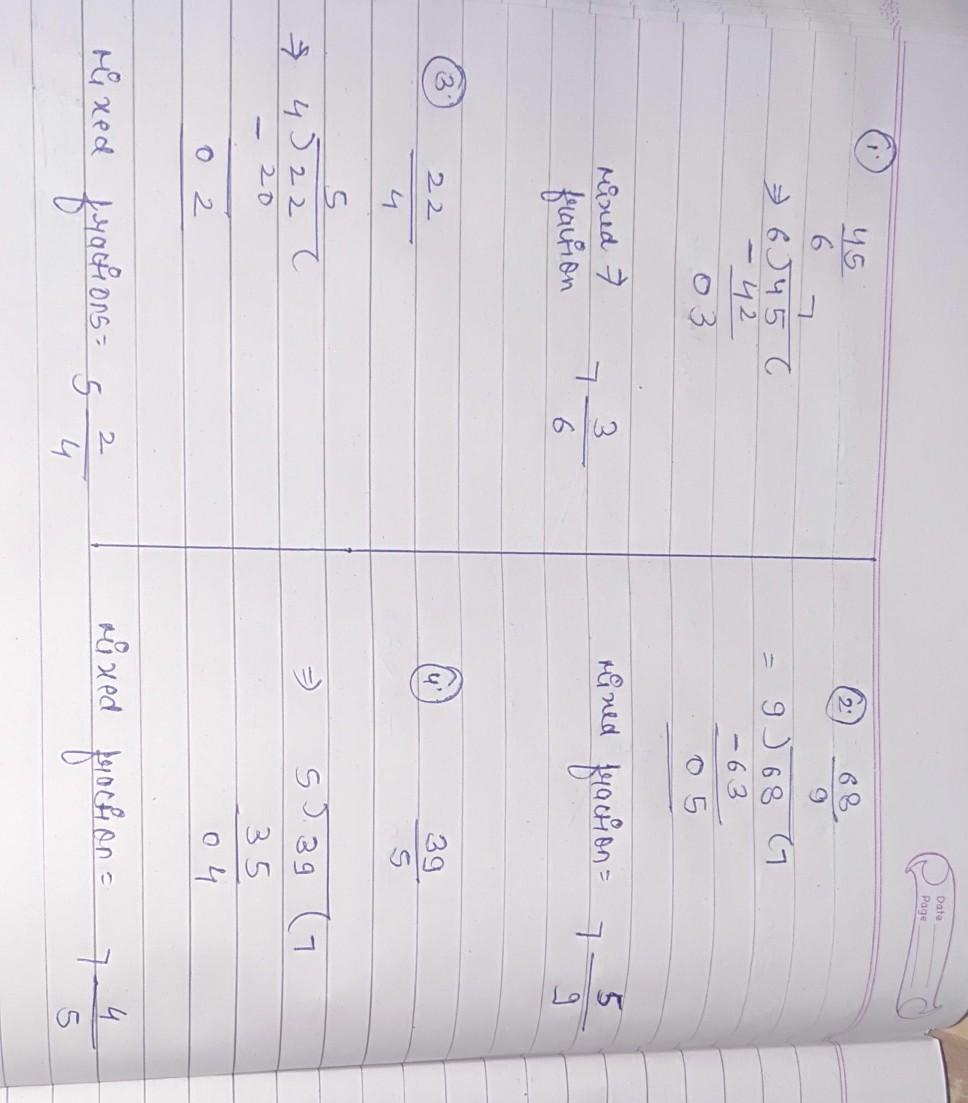 Date
Page
① 45/6
7
⇒ 6)45(
- 42
03
Mixed → 7 3/6
fraction
② 68/9
= 9)68(7
-63
05
Mixed fraction = 7 5/9
③ 22/4
5
⇒ 4)22(
- 20
02
Mixed fractions = 5 2/4
④ 39/5
⇒ 5)39(7
35
04
Mixed fraction = 7 4/5